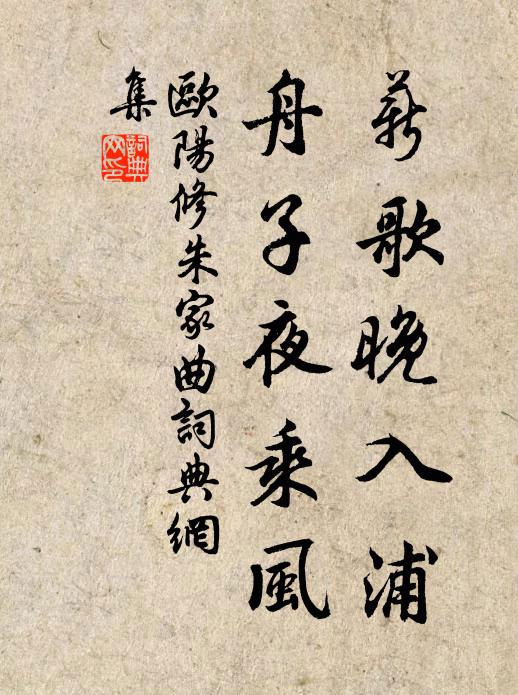 薪歌晚入浦
舟子夜乘風
歐陽修朱家曲詞典網
集
詞典
网印